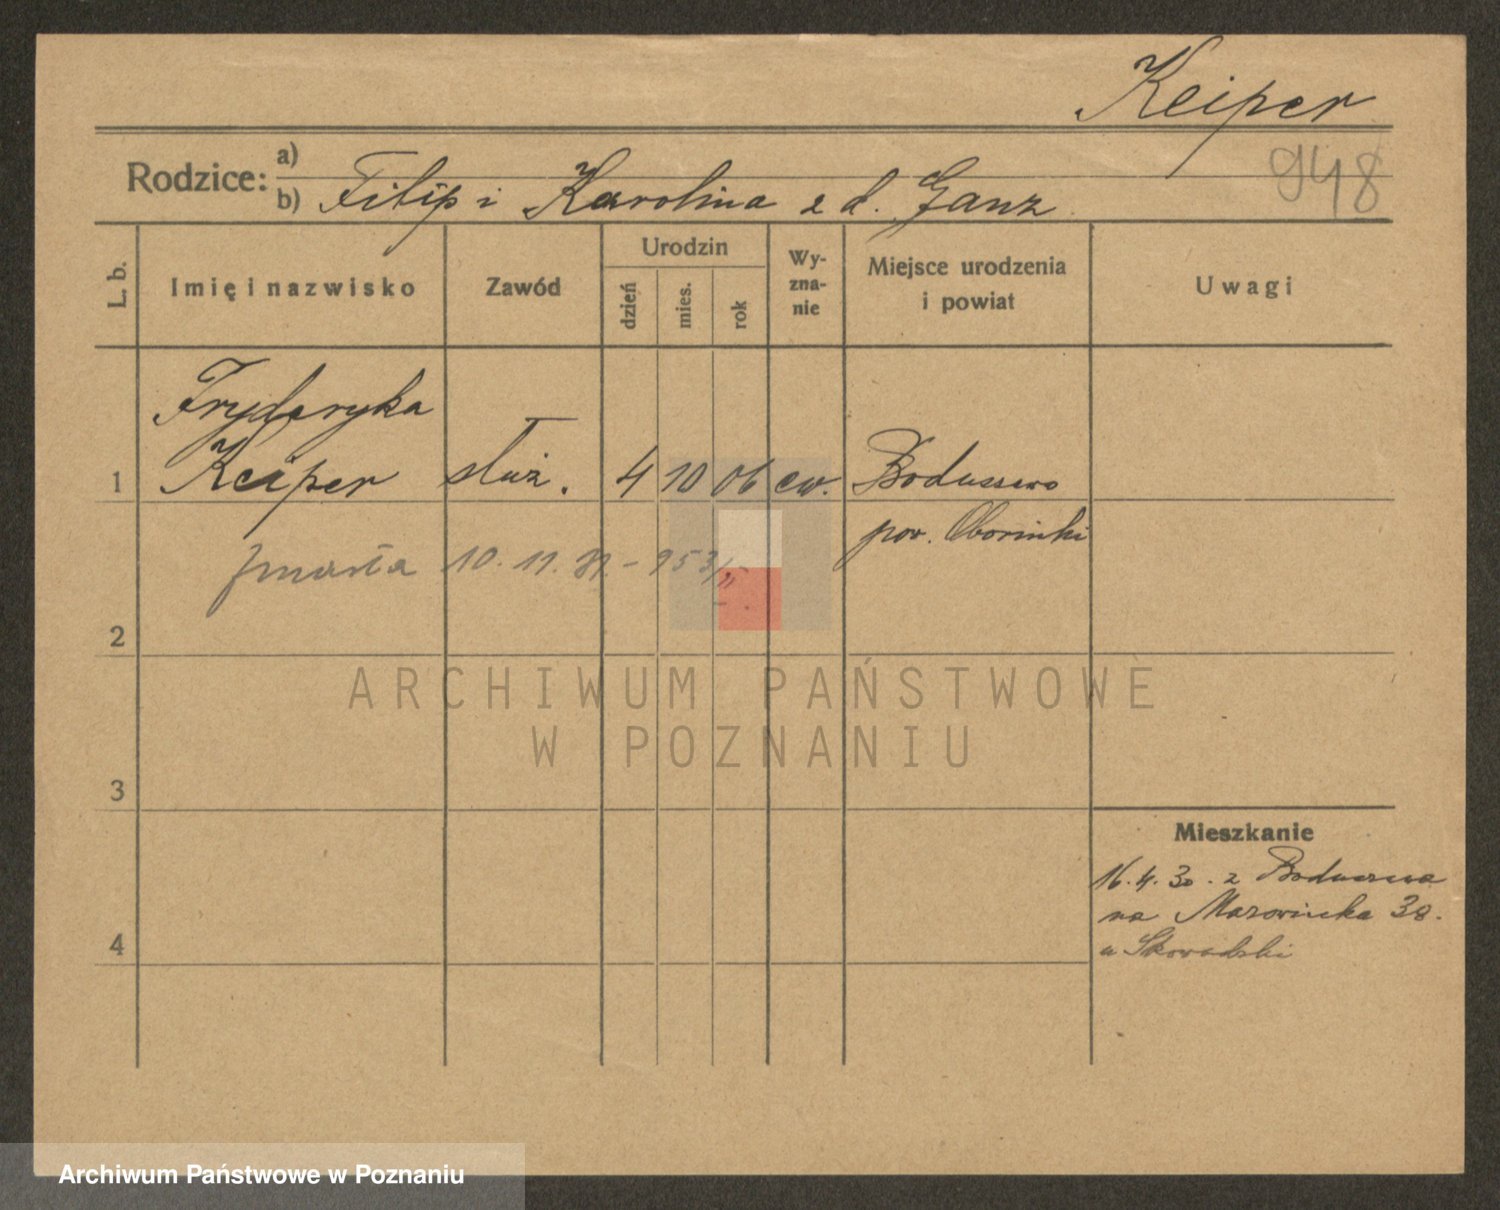 Keiper
948
Rodzice:
a)
b) Filip i Karolina z d. Ganz
L. b.
Imię i nazwisko
Zawód
Urodzin
dzień
mies.
rok
Wy-
zna-
nie
Miejsce urodzenia
i powiat
Uwagi
Fryderyka
1 Keiper służ. 4 10 06 ew. Boduszewo
pow. Obornicki
zmarła 10. 11. 31. - 953/II
2
ARCHIWUM PAŃSTWOWE
W POZNANIU
3
Mieszkanie
16.4.30. z Boduszewa
na Mazowiecka 38.
4
u
Archiwum Państwowe w Poznaniu